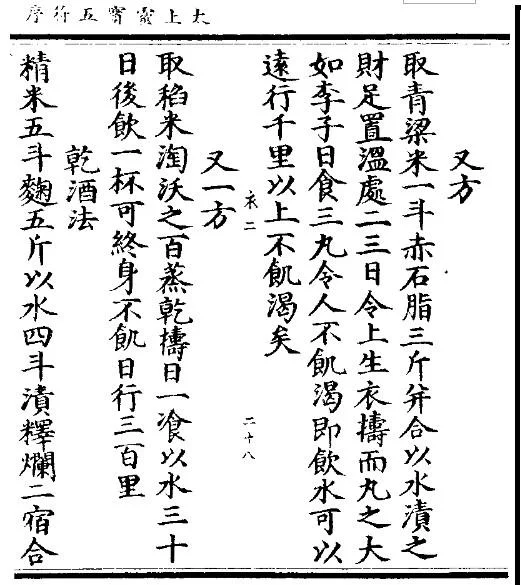 太上靈寶五符序
又方
取青粱米一斗赤石脂三斤并合以水漬之
財足置溫處二三日令上生衣擣而丸之大
如李子日食三丸令人不飢渴即飲水可以
遠行千里以上不飢渴矣
衣二 二十八
又一方
取稻米淘沃之百蒸乾擣日一飡以水三十
日後飲一杯可終身不飢日行三百里
乾酒法
精米五斗麴五斤以水四斗漬釋爛二宿合